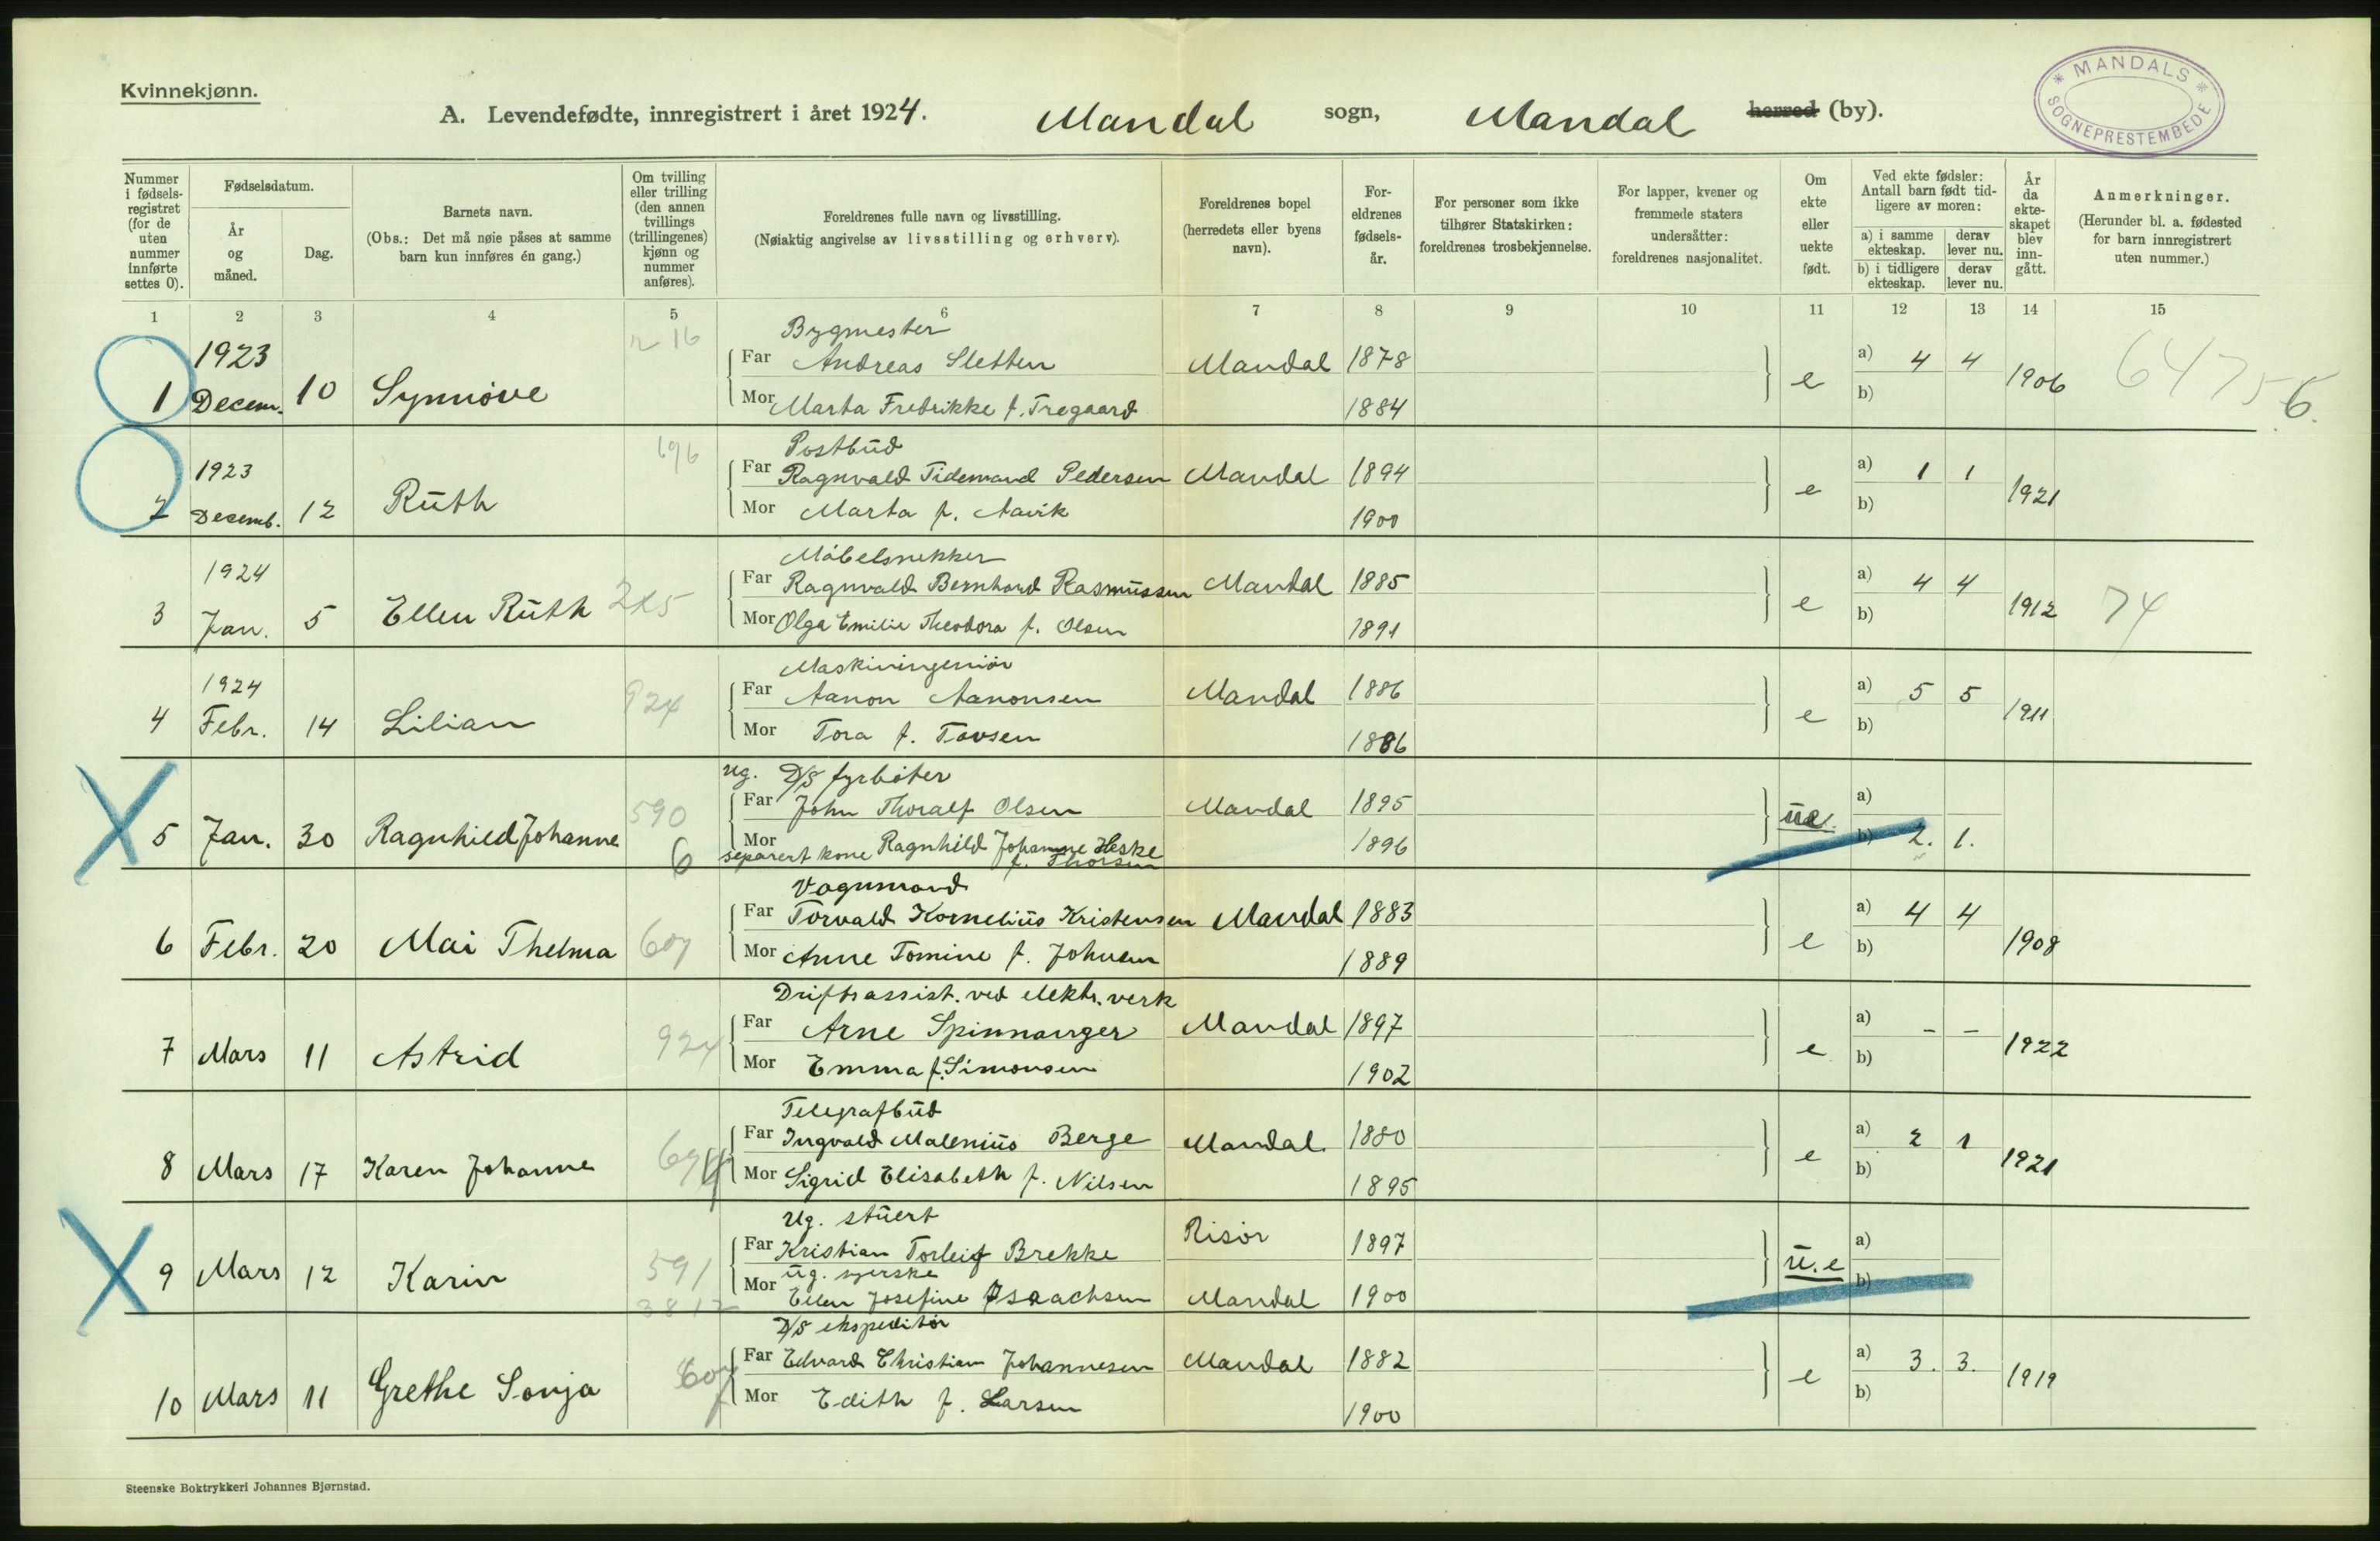 Kvinnekjønn.
A. Levendefødte, innregistrert i året 1924. Mandal sogn, Mandal herred (by).
* MANDALS * SOGNEPRESTEMBEDE
Nummer i fødsels-registret (for de uten nummer innførte settes 0).
Fødselsdatum.
År og måned.
Dag.
Barnets navn.
(Obs.: Det må nøie påses at samme barn kun innføres én gang.)
Om tvilling eller trilling (den annen tvillings (trillingenes) kjønn og nummer anføres).
Foreldrenes fulle navn og livsstilling.
(Nøiaktig angivelse av livsstilling og erhverv).
Foreldrenes bopel (herredets eller byens navn).
For-eldrenes fødsels-år.
For personer som ikke tilhører Statskirken: foreldrenes trosbekjennelse.
For lapper, kvener og fremmede staters undersåtter: foreldrenes nasjonalitet.
Om ekte eller uekte født.
Ved ekte fødsler: Antall barn født tid-ligere av moren:
a) i samme ekteskap. derav lever nu.
b) i tidligere ekteskap. derav lever nu.
År da ekte-skapet blev inn-gått.
Anmerkninger.
(Herunder bl. a. fødested for barn innregistrert uten nummer.)
1 2 3 4 5 6 7 8 9 10 11 12 13 14 15
1923 Bygmester
Far Andreas Sletten Mandal 1878 a) 4 4
1 Decem. 10 Synnöve e 1906
Mor Marta Fredrikke f. Tregaard 1884 b)
6475 6.
196 Postbüd
1923 Far Ragnvald Tidemand Pedersen Mandal 1894 a) 1 1
2 Decemb. 12 Rüth e 1921
Mor Marta f. Aavik 1900 b)
1924 Möbelsnekker
Far Ragnvald Bernhard Rasmüssen Mandal 1885 a) 4 4
3 Jan. 5 Ellen Rüth e 1912 74
Mor Olga Emilie Theodora f. Olsen 1891 b)
1924 Maskiningeniör
Far Aanon Aanonsen Mandal 1886 a) 5 5
4 Febr. 14 Lilian 924 e 1911
Mor Tora f. Tovsen 1886 b)
ug. D/S fyrböter
Far John Thoralf Olsen Mandal 1895 a)
5 Jan. 30 Ragnhild Johanne 590 6 üe.
Mor separert kone Ragnhild Johanne Heske 1896 b) 2. 1.
f. Thorsen
Vognmand
Far Torvald Kornelius Kristensen Mandal 1883 a) 4 4
6 Febr. 20 Mai Thelma 607 e 1908
Mor Anne Tomine f. Johnsen 1889 b)
Driftsassist. ved elektr. verk
Far Arne Spinnanger Mandal 1897 a) – –
7 Mars 11 Astrid 924 e 1922
Mor Emma f. Simonsen 1902 b)
Telegrafbüd
Far Ingvald Malenius Berge Mandal 1880 a) 2 1
8 Mars 17 Karen Johanne e 1921
Mor Sigrid Elisabeth f. Nilsen 1895 b)
Ug. stüert
Far Kristian Torleif Brekke Risör 1897 a)
9 Mars 12 Karin 591 ü.e
üg. syerske
Mor Ellen Josefine Isaachsen Mandal 1900 b)
D/S ekspeditör
Far Edvard Christian Johannesen Mandal 1882 a) 3. 3.
10 Mars 11 Grethe Sonja 607 e 1919
Mor Edith f. Larsen 1900 b)
Steenske Boktrykkeri Johannes Bjørnstad.